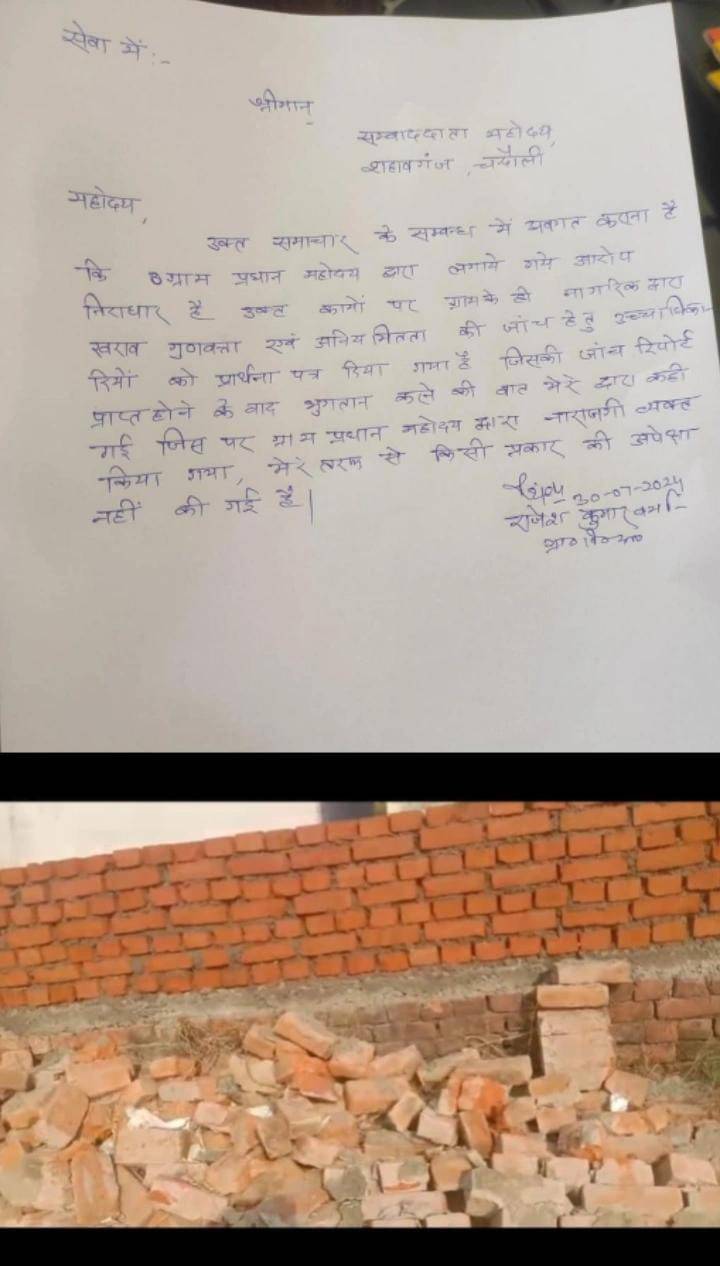 सेवा में:-
श्रीमान्
सम्वाददाता महोदय,
शहाबगंज, चन्दौली
महोदय,
उक्त समाचार के सम्बन्ध में अवगत कराना है
कि ग्राम प्रधान महोदय द्वारा लगाये गये आरोप
निराधार है उक्त कार्यो पर ग्राम के ही नागरिक द्वारा
खराब गुणवत्ता एवं अनियमितता की जांच हेतु उच्चाधिका-
रियों को प्रार्थना पत्र दिया गया है जिसकी जांच रिपोर्ट
प्राप्त होने के बाद भुगतान करने की बात मेरे द्वारा कही
गई जिस पर ग्राम प्रधान महोदय द्वारा नाराजगी व्यक्त
किया गया, मेरे तरफ से किसी प्रकार की अपेक्षा
नहीं की गई है|
30-07-2024
राजेश कुमार वर्मा
ग्रा०वि०अ०